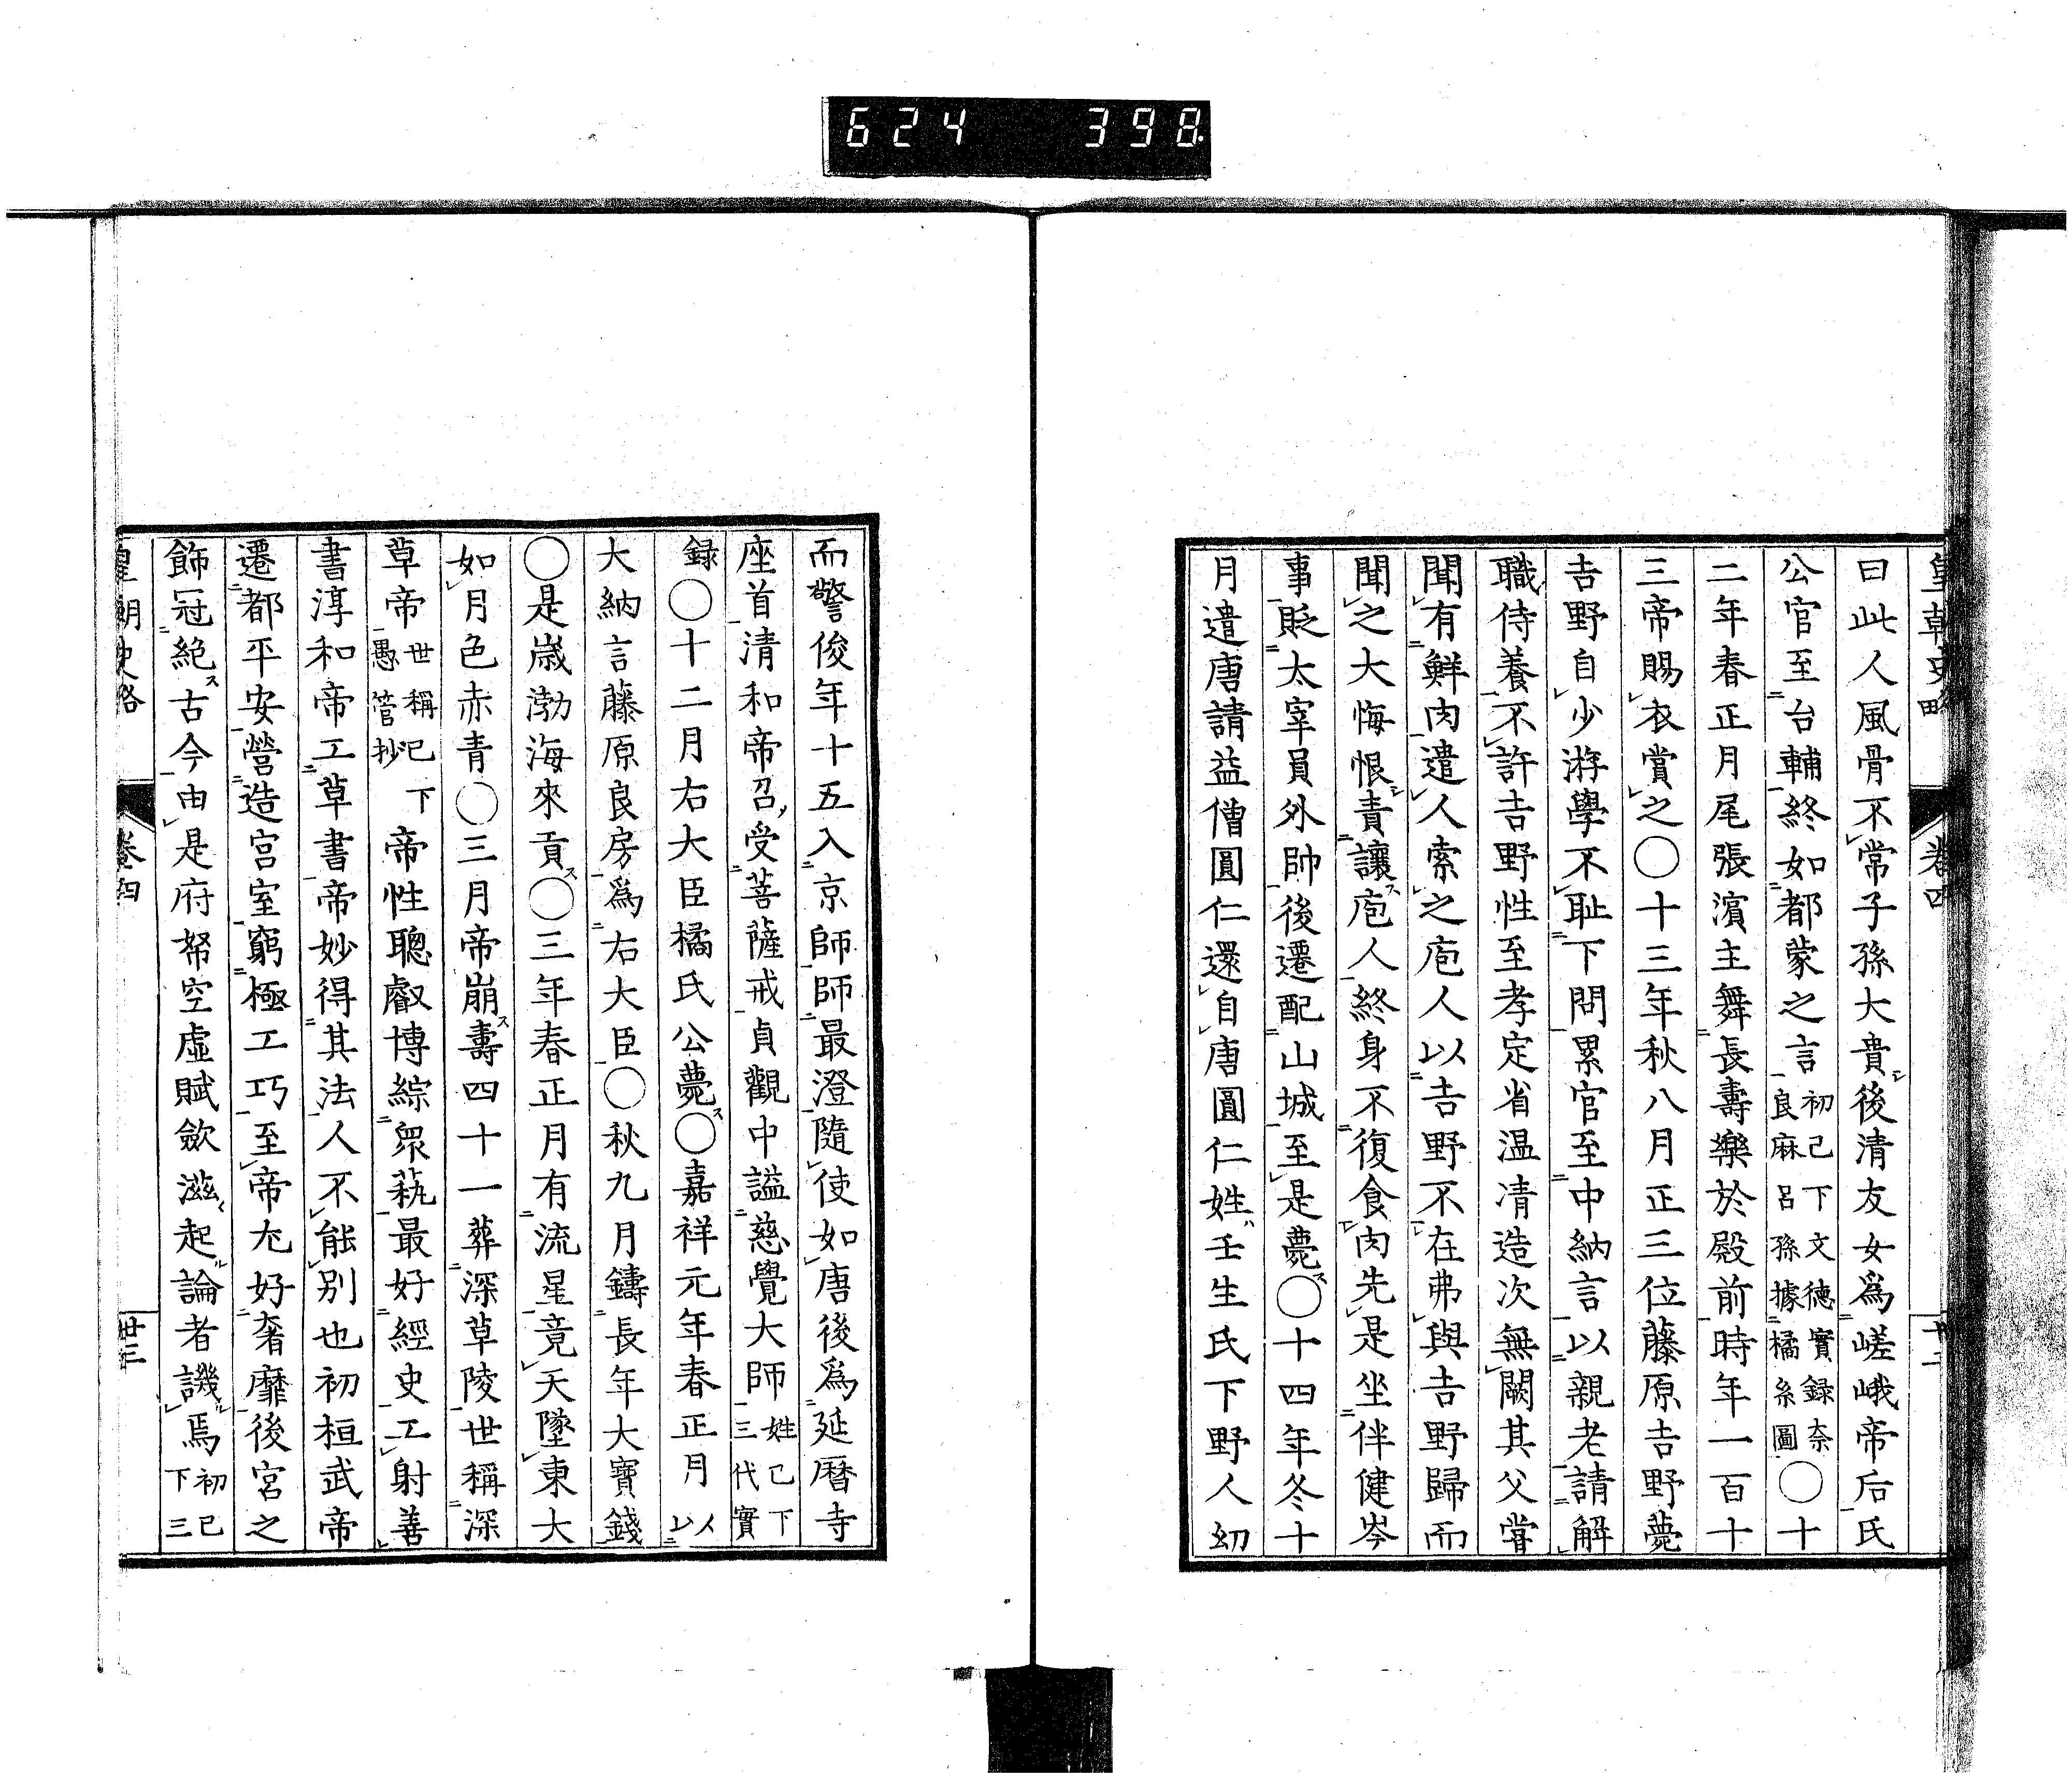 624 398
皇朝史略 卷四
曰此人風骨不常子孫大貴後清友女爲嵯峨帝后氏
公官至台輔終如都蒙之言初已下文德實録奈良麻呂孫據橘系圖〇十
二年春正月尾張濱主舞長壽樂於殿前時年一百十
三帝賜衣賞之〇十三年秋八月正三位藤原吉野薨
吉野自少游學不耻下問累官至中納言以親老請解
職侍養不許吉野性至孝定省温凊造次無闕其父嘗
聞有鮮肉遣人索之庖人以吉野不在弗與吉野歸而
聞之大悔恨責讓庖人終身不復食肉先是坐伴健岑
事貶太宰員外帥後遷配山城至是薨〇十四年冬十
月遣唐請益僧圓仁還自唐圓仁姓壬生氏下野人幼
而警俊年十五入京師師最澄隨使如唐後爲延暦寺
座首清和帝召受菩薩戒貞觀中謚慈覺大師姓已下三代實
録〇十二月右大臣橘氏公薨〇嘉祥元年春正月以
大納言藤原良房爲右大臣〇秋九月鑄長年大寶錢
〇是歳渤海來貢〇三年春正月有流星竟天墜東大
如月色赤青〇三月帝崩壽四十一葬深草陵世稱深
草帝世稱已下愚管抄帝性聰叡博綜衆藝最好經史工射善
書淳和帝工草書帝妙得其法人不能別也初桓武帝
遷都平安營造宮室窮極工巧至帝尤好奢靡後宮之
飾冠絶古今由是府帑空虛賦歛滋起論者譏焉初已下三
皇朝史略 卷四 卅三